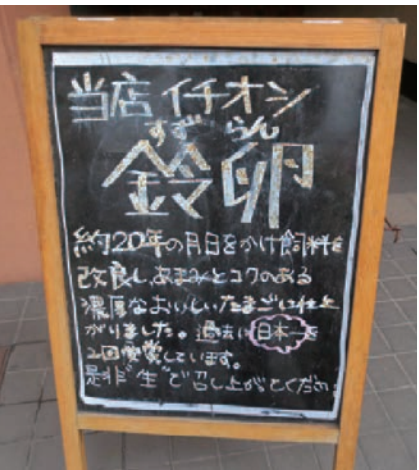 当店イチオシ
すずらん
鈴卵
約20年の月日をかけ飼料を
改良し、あまみとコクのある
濃厚なおいしいたまごに仕上
がりました。過去に日本一を
2回受賞しています。
是非"生"で召し上がってくださ